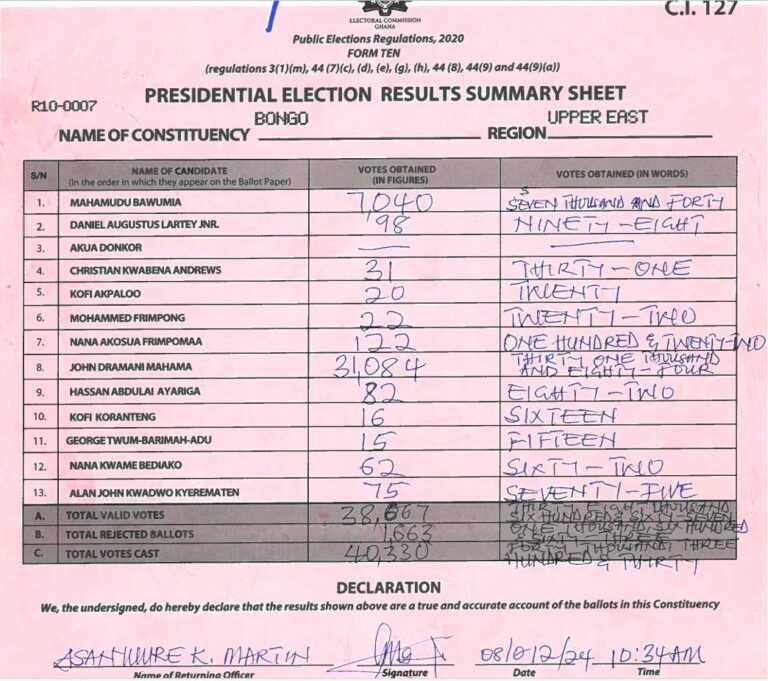 C.I. 127
ELECTORAL COMMISSION
GHANA
Public Elections Regulations, 2020
FORM TEN
(regulations 3(1)(m), 44 (7)(c), (d), (e), (g), (h), 44 (8), 44(9) and 44(9)(a))
R10-0007
PRESIDENTIAL ELECTION RESULTS SUMMARY SHEET
NAME OF CONSTITUENCY BONGO REGION UPPER EAST
S/N NAME OF CANDIDATE (In the order in which they appear on the Ballot Paper) VOTES OBTAINED (IN FIGURES) VOTES OBTAINED (IN WORDS)
1. MAHAMUDU BAWUMIA 7,040 SEVEN THOUSAND AND FORTY
2. DANIEL AUGUSTUS LARTEY JNR. 98 NINETY-EIGHT
3. AKUA DONKOR — —
4. CHRISTIAN KWABENA ANDREWS 31 THIRTY-ONE
5. KOFI AKPALOO 20 TWENTY
6. MOHAMMED FRIMPONG 22 TWENTY-TWO
7. NANA AKOSUA FRIMPOMAA 122 ONE HUNDRED & TWENTY-TWO
8. JOHN DRAMANI MAHAMA 31,084 THIRTY ONE THOUSAND AND EIGHTY-FOUR
9. HASSAN ABDULAI AYARIGA 82 EIGHTY-TWO
10. KOFI KORANTENG 16 SIXTEEN
11. GEORGE TWUM-BARIMAH-ADU 15 FIFTEEN
12. NANA KWAME BEDIAKO 62 SIXTY-TWO
13. ALAN JOHN KWADWO KYEREMATEN 75 SEVENTY-FIVE
A. TOTAL VALID VOTES 38,667 THIRTY EIGHT THOUSAND SIX HUNDRED & SIXTY-SEVEN
B. TOTAL REJECTED BALLOTS 1,663 ONE THOUSAND, SIX HUNDRED & SIXTY-THREE
C. TOTAL VOTES CAST 40,330 THOUSAND THREE HUNDRED & THIRTY
DECLARATION
We, the undersigned, do hereby declare that the results shown above are a true and accurate account of the ballots in this Constituency
K. MARTIN 10:34AM
Name of Returning Officer Signature Date Time